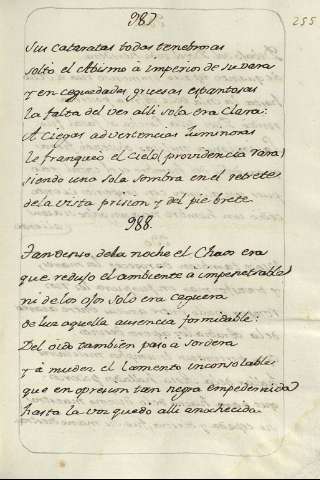 987
255
Sus cataratas todas tenebrosas
soltò el Abismo à imperios de su vara
y en ceguedades gruesas espantosas
la falta del ver alli sola era clara:
A ciegas advertencias luminosas
le franqueò el cielo (providencia rara)
siendo una sola sombra en el retrete
de la vista prision y del pie brete.
988.
Tan denso de la noche el Chaos era
que redujo el ambiente à impenetrable
ni de los ojos solo era ceguera
de luz aquella ausencia formidable:
Del oido tambien pasò à sordera
y à mudez el lamento inconsolable
que en opresion tan negra empedernida
hasta la voz quedò alli anochecida.